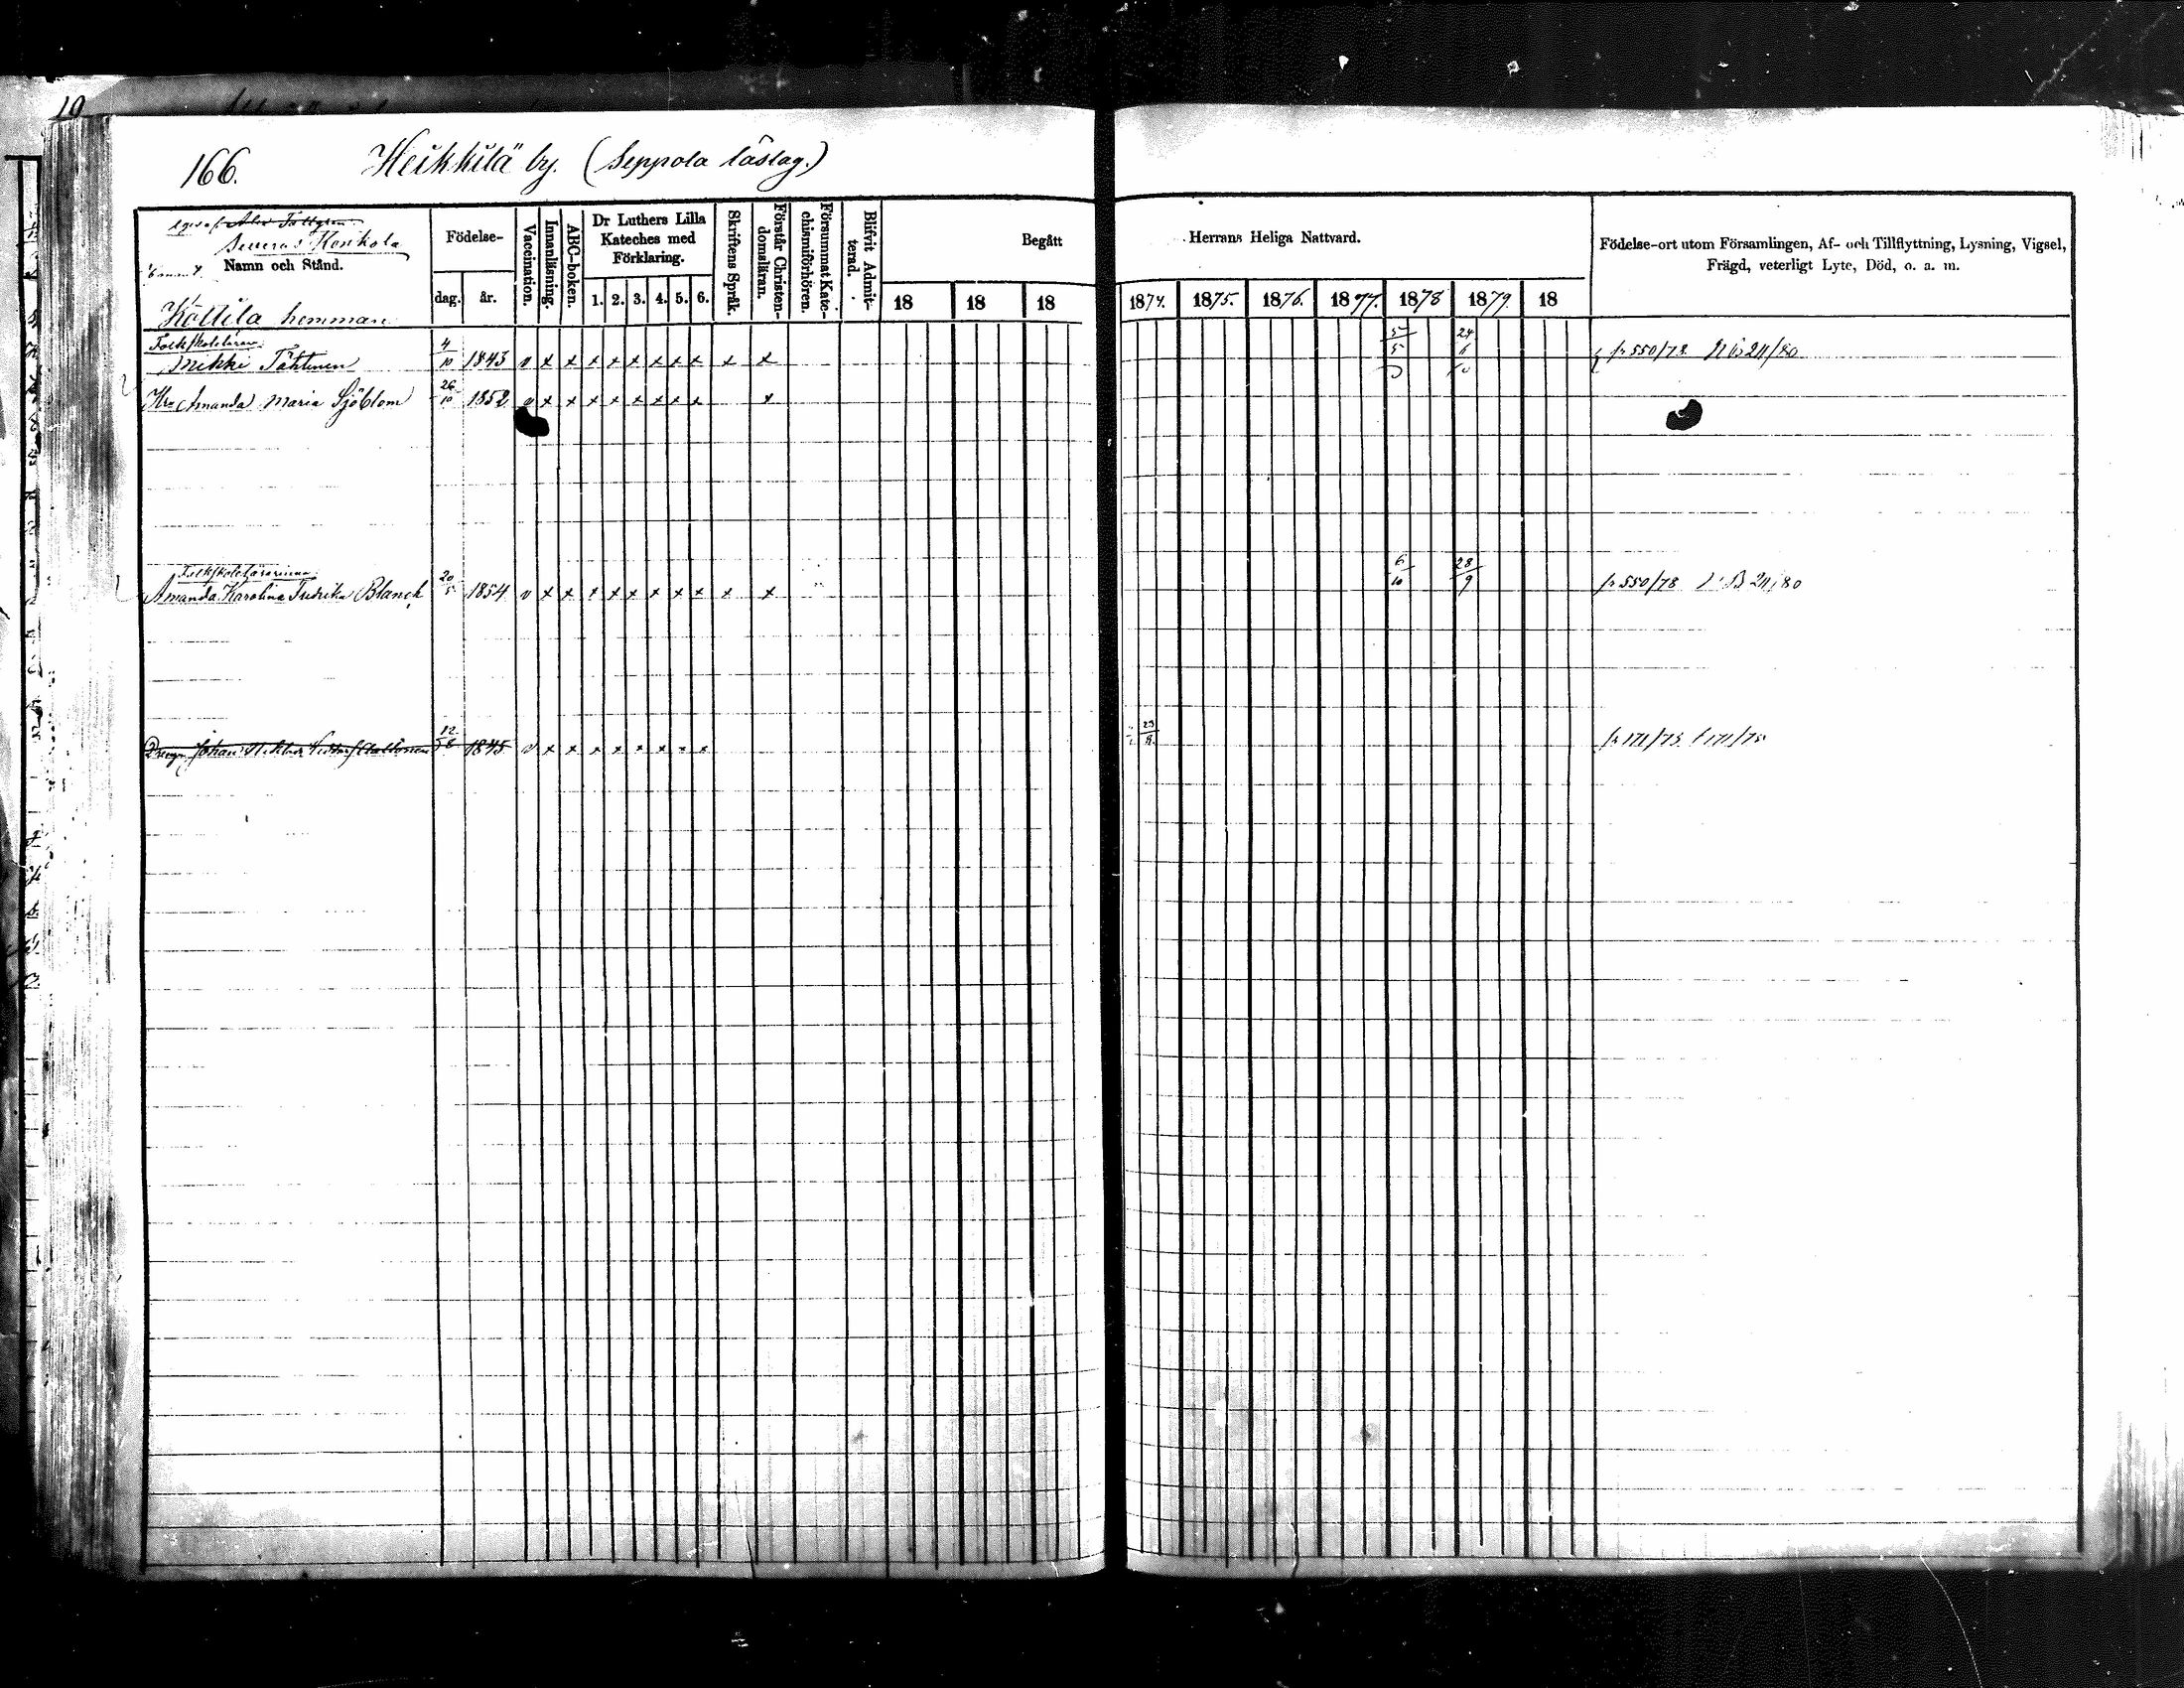 19
166.
Heikkilä by. (Seppola läslag.)
eges af Alex Tallgren
Severus Konkola
Namn och Stånd.
Köttilä hemman
Födelse-
dag. år.
Vaccination.
Innanläsning.
ABC-boken.
Dr Luthers Lilla
Kateches med
Förklaring.
1. 2. 3. 4. 5. 6.
Skriftens Språk.
Förstår Christen-
domsläran.
Försummat Kate-
chismiförhören.
Blifvit Admit-
terad.
Begått
18 18 18
Herrans Heliga Nattvard.
1874. 1875. 1876. 1877. 1878 1879. 18
Födelse-ort utom Församlingen, Af- och Tillflyttning, Lysning, Vigsel,
Frägd, veterligt Lyte, Död, o. a. m.
Folkskolelärar
Mikki Tähtinen 4/10 1843 v x x x x x x x x x x 5/5 24/6 fr 550/78
Hu Amanda Maria Sjöblom 26/10 1852 v x x x x x x x x x
Folkskolelärarinna
Amanda Karolina Fredrika Blanck 20/5 1854 v x x x x x x x x x x 6/10 28/9 fr 550/78 B 211/80
Johan Victor 12/8 1845 v x x x x x x x x 23/8 fr 171/75